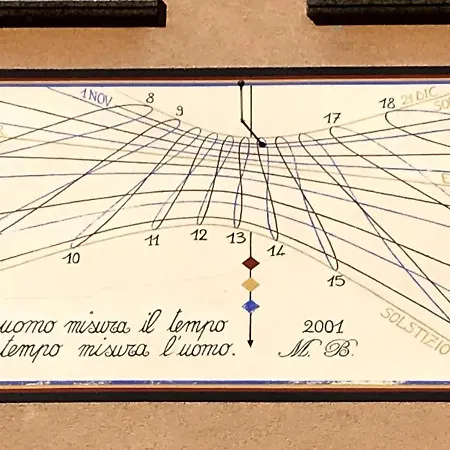 1 NOV 8 9 17 18 21 DIC
SO
E
10 11 12 13 14 15
SOLSTIZIO
uomo misura il tempo
tempo misura l'uomo.
2001
M. B.